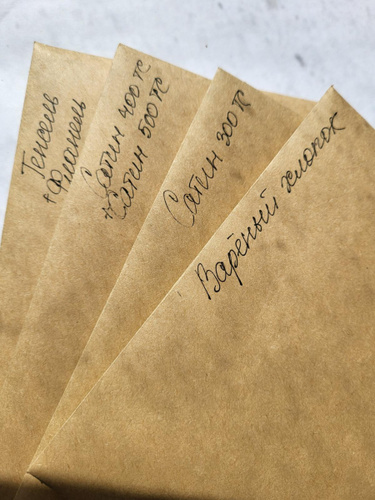 Тенсель
+ Фланель
Сатин 400 ТС
+ Сатин 500 ТС
Сатин 300 ТС
Варёный хлопок